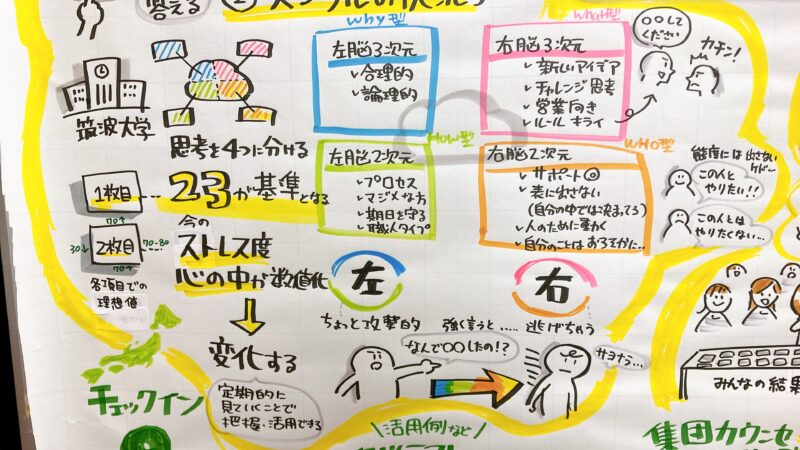 答える
why型
what型
左脳3次元
合理的
論理的
右脳3次元
新しいアイデア
チャレンジ思考
営業向き
ルール キライ
〇〇して
ください
カチン!
筑波大学
思考を4つに分ける
How型
左脳2次元
プロセス
マジメな方
期日を守る
職人タイプ
WHO型
右脳2次元
サポート◎
表に出さない
(自分の中では決まってる)
人のために動く
自分のことは おろそかに…
態度には出さない
けど…
この人と
やりたい!!
この人とは
やりたくない…
1枚目
23が基準となる
70↑
今の
2枚目
30↓
70-80
70↑
ストレス度
心の中が数値化
各項目での
理想値
左
右
ちょっと攻撃的
強く言うと……逃げちゃう
なんで〇〇したの!?
サヨナラ…
変化する
定期的に
見ていくことで
把握・活用できる
チェックイン
活用例など
みんなの結果
集団カウンセ